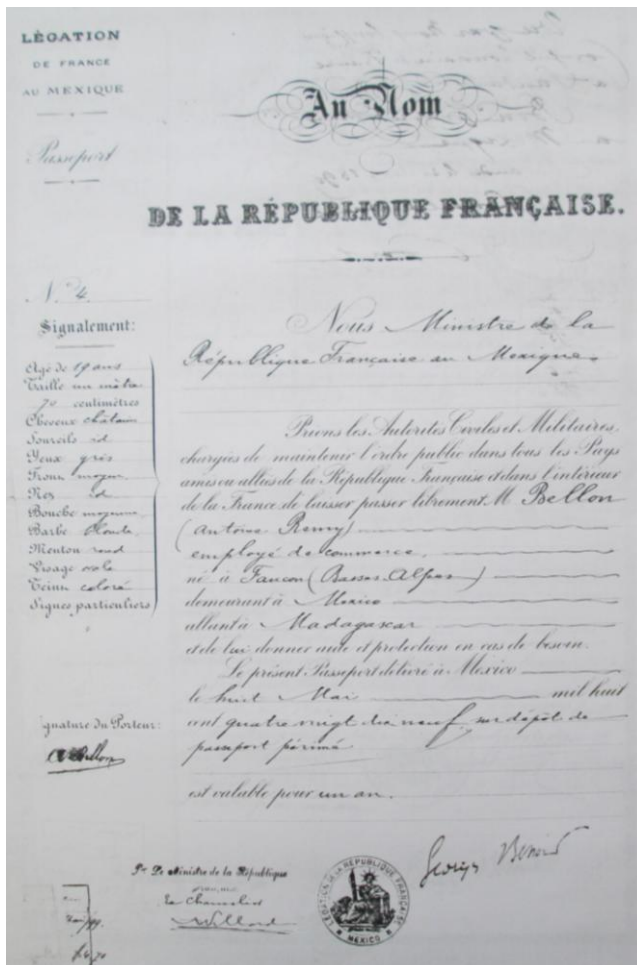 LÉGATION
DE FRANCE
AU MEXIQUE
Passeport
Au Nom
DE LA RÉPUBLIQUE FRANÇAISE.
N. 4.
Signalement:
Agé de 19 ans
Taille un mètre
70 centimètres
Cheveux châtain
Sourcils id
Yeux gris
Front moyen
Nez id
Bouche moyenne
Barbe blonde
Menton rond
Visage ovale
Teint coloré
Signes particuliers
Nous Ministre de la
République Française au Mexique
Prions les Autorités Civiles et Militaires,
chargées de maintenir l'ordre public dans tous les Pays
amis ou alliés de la République Française et dans l'intérieur
de la France de laisser passer librement M. Bellon
(Antoine Remy)
employé de commerce
né à Faucon (Basses-Alpes)
demeurant à Mexico
allant à Madagascar
et de lui donner aide et protection en cas de besoin.
Le présent Passeport délivré à Mexico
le huit Mai mil huit
cent quatre vingt dix neuf, sur dépôt de
passeport périmé
est valable pour un an.
gnature du Porteur:
Bellon
Pr Le Ministre de la République
Le Chancelier
Georges Benoit
LÉGATION DE LA RÉPUBLIQUE FRANÇAISE
MEXICO